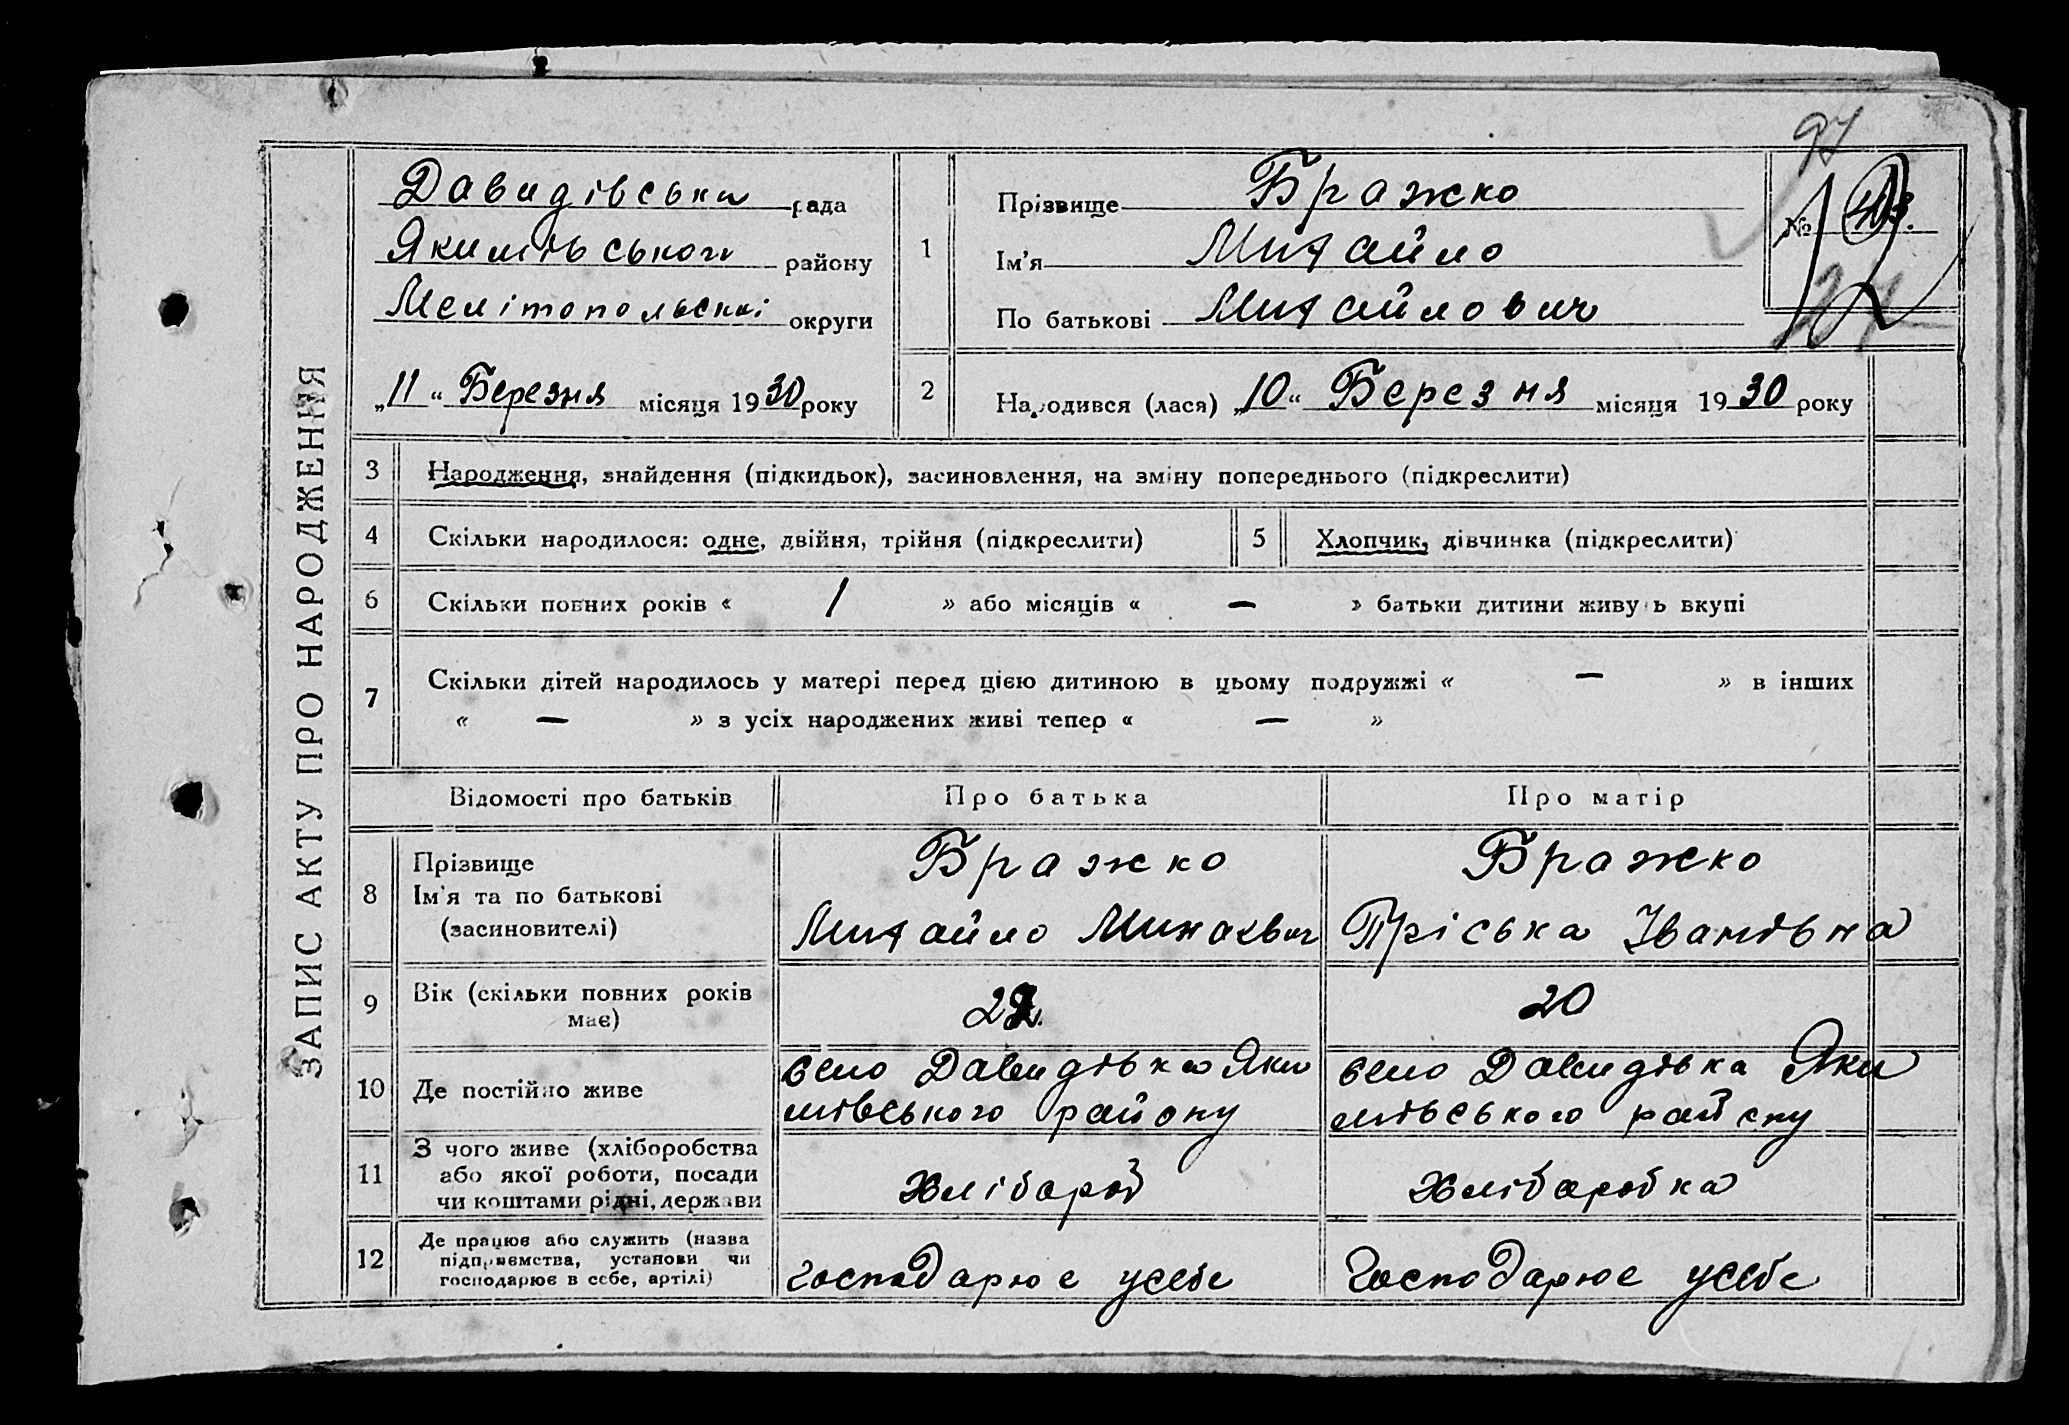 ЗАПИС АКТУ ПРО НАРОДЖЕННЯ
97
Давидівська рада
Якимівського району
Мелітопольскої округи
„11“ Березня місяця 1930 року
1
Прізвище Бражко
Ім'я Михайло
По батькові Михайлович
№
2
Народився (лася) „10“ Березня місяця 1930 року
3 Народження, знайдення (підкидьок), засиновлення, на зміну попереднього (підкреслити)
4 Скільки народилося: одне, двійня, трійня (підкреслити)
5 Хлопчик, дівчинка (підкреслити)
6 Скільки повних років « 1 » або місяців « — » батьки дитини живуть вкупі
7 Скільки дітей народилось у матері перед цією дитиною в цьому подружжі « — » в інших
« — » з усіх народжених живі тепер « — »
Відомості про батьків Про батька Про матір
8 Прізвище
Ім'я та по батькові
(засновителі)
Бражко
Михайло
Бражко
Пріська Іванівна
9 Вік (скільки повних років
має)
20
10 Де постійно живе
село Давидівка Яки
мівського району
село Давидівка Яки
мівського району
11 З чого живе (хліборобства
або якої роботи, посади
чи коштами рідні, держави
хлібароб
хлібаробка
12 Де працює або служить (назва
підприємства, установи чи
господарює в себе, артілі)
господарює усебе
Господарює усебе